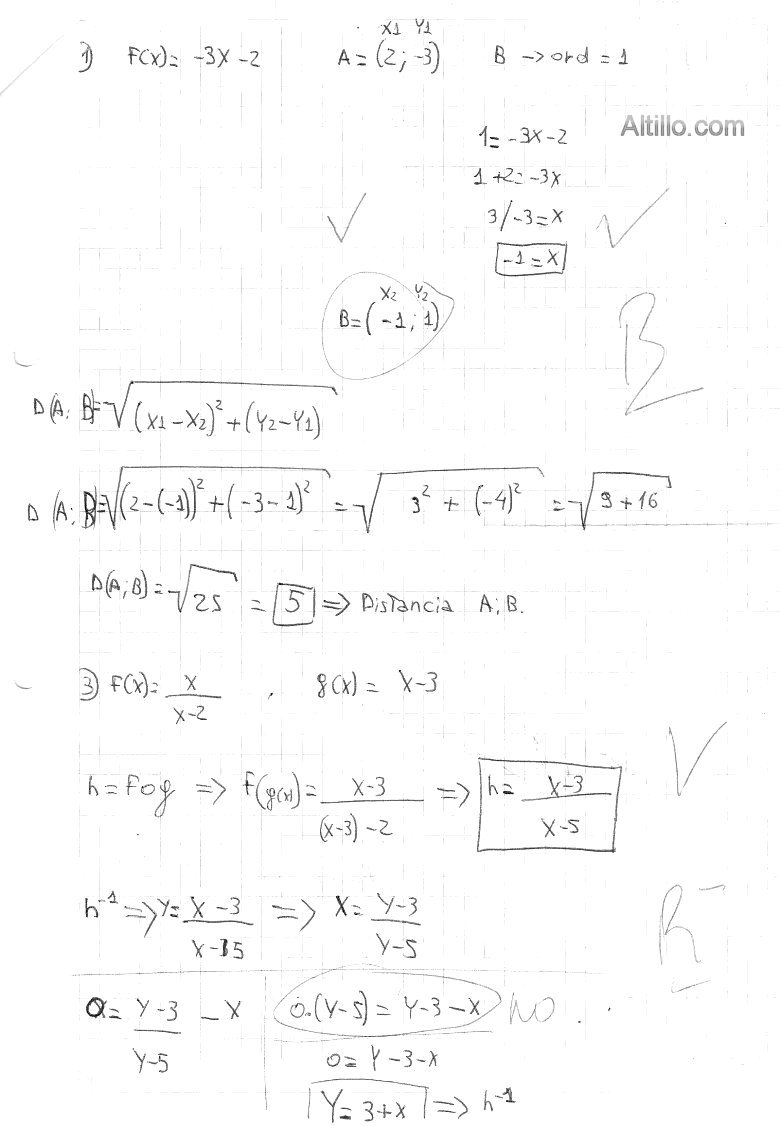 X1 Y1
1) F(x)= -3x-2 A = (2; -3) B → ord = 1
Altillo.com
1= -3x-2
1+2= -3x
3/-3=x
-1=x
X2 Y2
B=(-1; 1)
B
D(A; B)=√(x1-x2)²+(Y2-Y1)
D (A; B)=√(2-(-1))²+(-3-1)² = √3² + (-4)² = √9+16
D(A;B)=√25 = 5 ⇒ Distancia A;B.
3) F(x)= x/x-2 , g(x) = x-3
h=Fog ⇒ F(g(x))= x-3/(x-3)-2 ⇒ h= x-3/x-5
h⁻¹ ⇒ Y= x-3/x-5 ⇒ x= Y-3/Y-5
R⁻
0= Y-3/Y-5 - x 0.(Y-5) = Y-3-x NO.
0= Y-3-x
Y= 3+x ⇒ h⁻¹